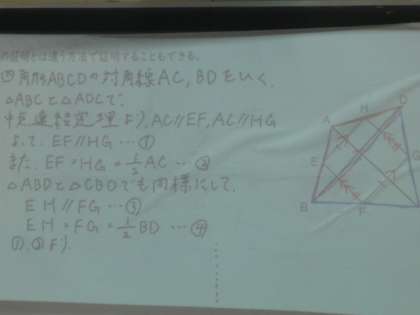 の証明とは違う方法で証明することもできる。
四角形ABCDの対角線AC,BDをひく。
△ABCと△ADCで、
中点連結定理より,AC//EF,AC//HG
よって、EF//HG…①
また、EF=HG=1/2AC…②
△ABDと△CBDでも同様にして、
EH//FG…③
EH=FG=1/2BD…④
①,②より
A
H
D
E
G
B
F